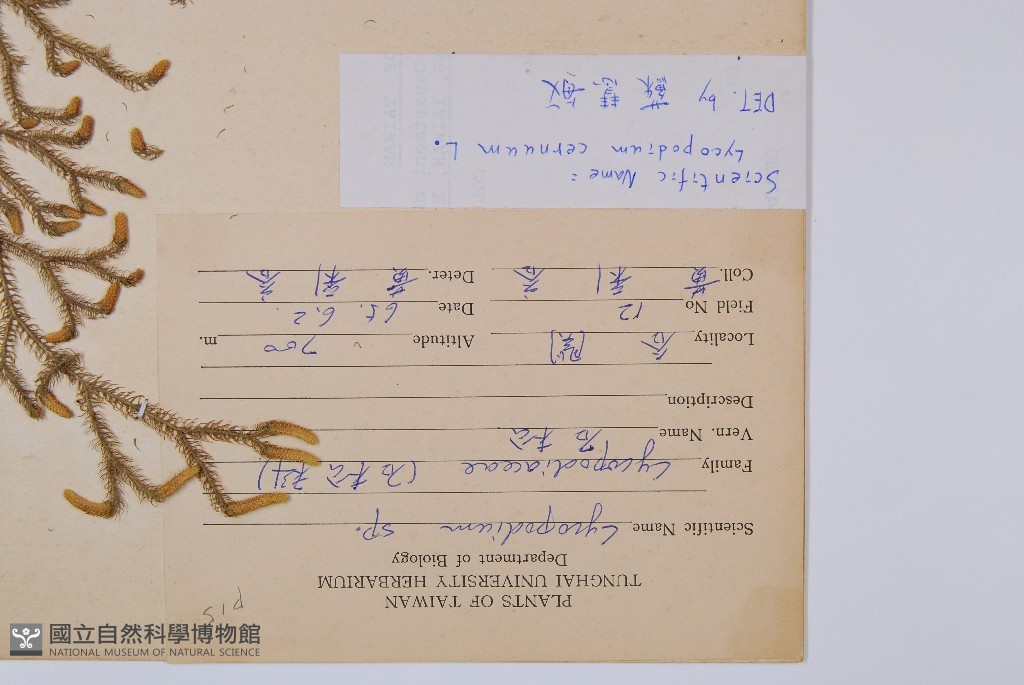 PLANTS OF TAIWAN
TUNGHAI UNIVERSITY HERBARIUM
Department of Biology
Scientific Name Lycopodium sp.
Family Lycopodiaceae (石松科)
Vern. Name 石松
Description
Locality 谷關 Altitude 700 m.
Field No 12 Date 65. 6. 2.
Coll. 黃 Deter. 黃
Scientific Name:
Lycopodium cernuum L.
DET. by 蘇慧敏
P15
國立自然科學博物館
NATIONAL MUSEUM OF NATURAL SCIENCE